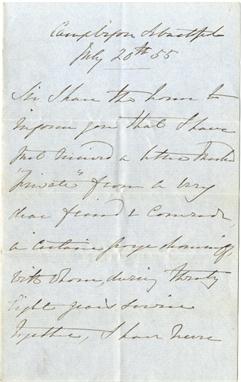 Camp before Sebastopol
July 20th 55
Sir I have the honor to
inform you that I have
just received a letter marked
"private" from a very
dear friend & Comrade
a certain
with whom, during thirty
eight years service
together, I have never